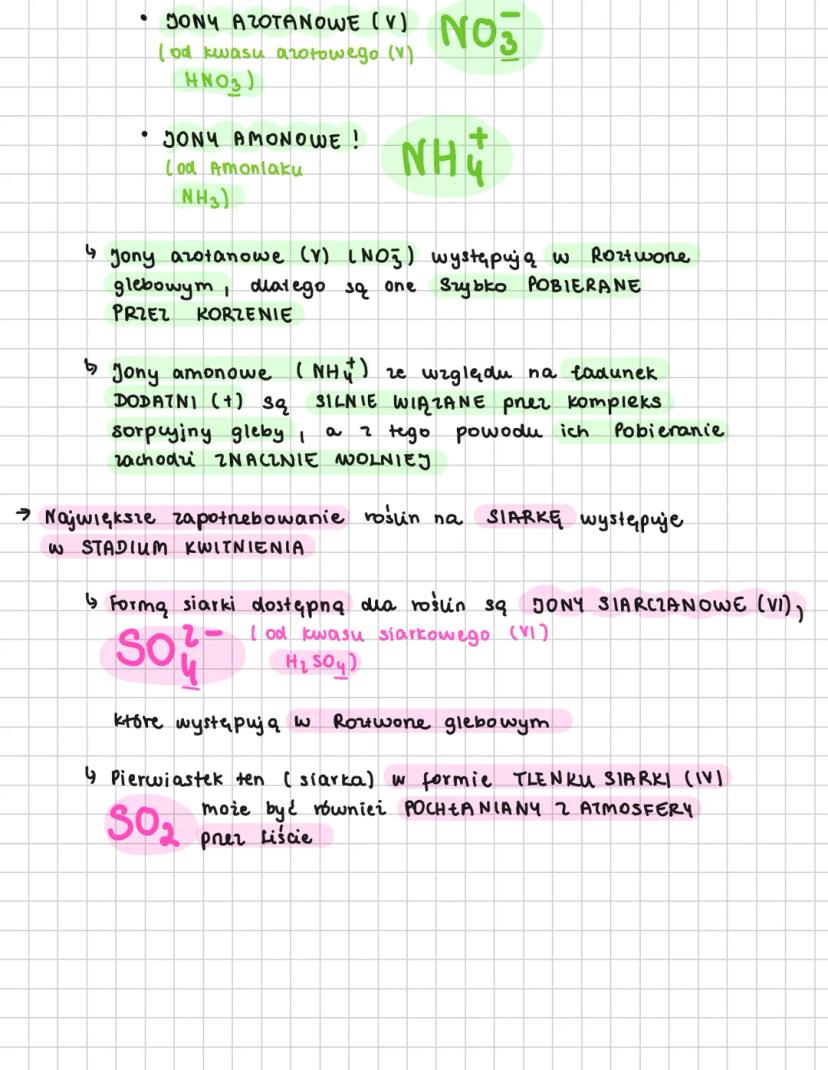 • JONY AZOTANOWE (V) NO₃⁻
(od kwasu azotowego (V)
HNO₃)
• JONY AMONOWE! NH₄⁺
(od Amoniaku
NH₃)
↳ Jony azotanowe (V) (NO₃⁻) występują w Roztworze
glebowym, dlatego są one szybko POBIERANE
PRZEZ KORZENIE
↳ Jony amonowe (NH₄⁺) ze względu na ładunek
DODATNI (+) są SILNIE WIĄZANE przez kompleks
sorpcyjny gleby, a z tego powodu ich Pobieranie
zachodzi ZNACZNIE WOLNIEJ
→ Największe zapotrzebowanie roślin na SIARKĘ występuje
w STADIUM KWITNIENIA
↳ Formą siarki dostępną dla roślin są JONY SIARCZANOWE (VI),
SO₄²⁻ (od kwasu siarkowego (VI)
H₂SO₄)
które występują w Roztworze glebowym
↳ Pierwiastek ten (siarka) w formie TLENKU SIARKI (IV)
SO₂ może być również POCHŁANIANY Z ATMOSFERY
przez Liście